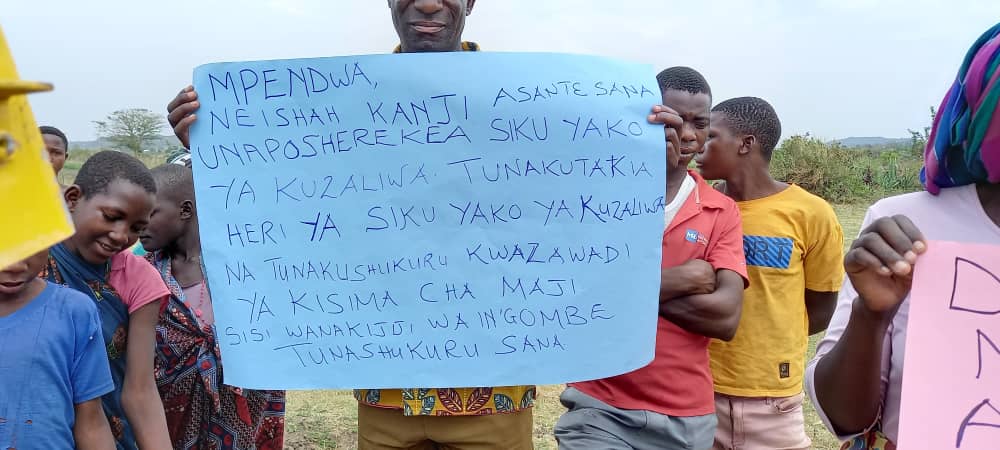 MPENDWA,
NEISHAH KANJI ASANTE SANA
UNAPOSHEREKEA SIKU YAKO
YA KUZALIWA. TUNAKUTAKIA
HERI YA SIKU YAKO YA KUZALIWA
NA TUNAKUSHUKURU KWAZAWADI
YA KISIMA CHA MAJI.
SISI WANAKIJIJI WA IN'GOMBE
TUNASHUKURU SANA